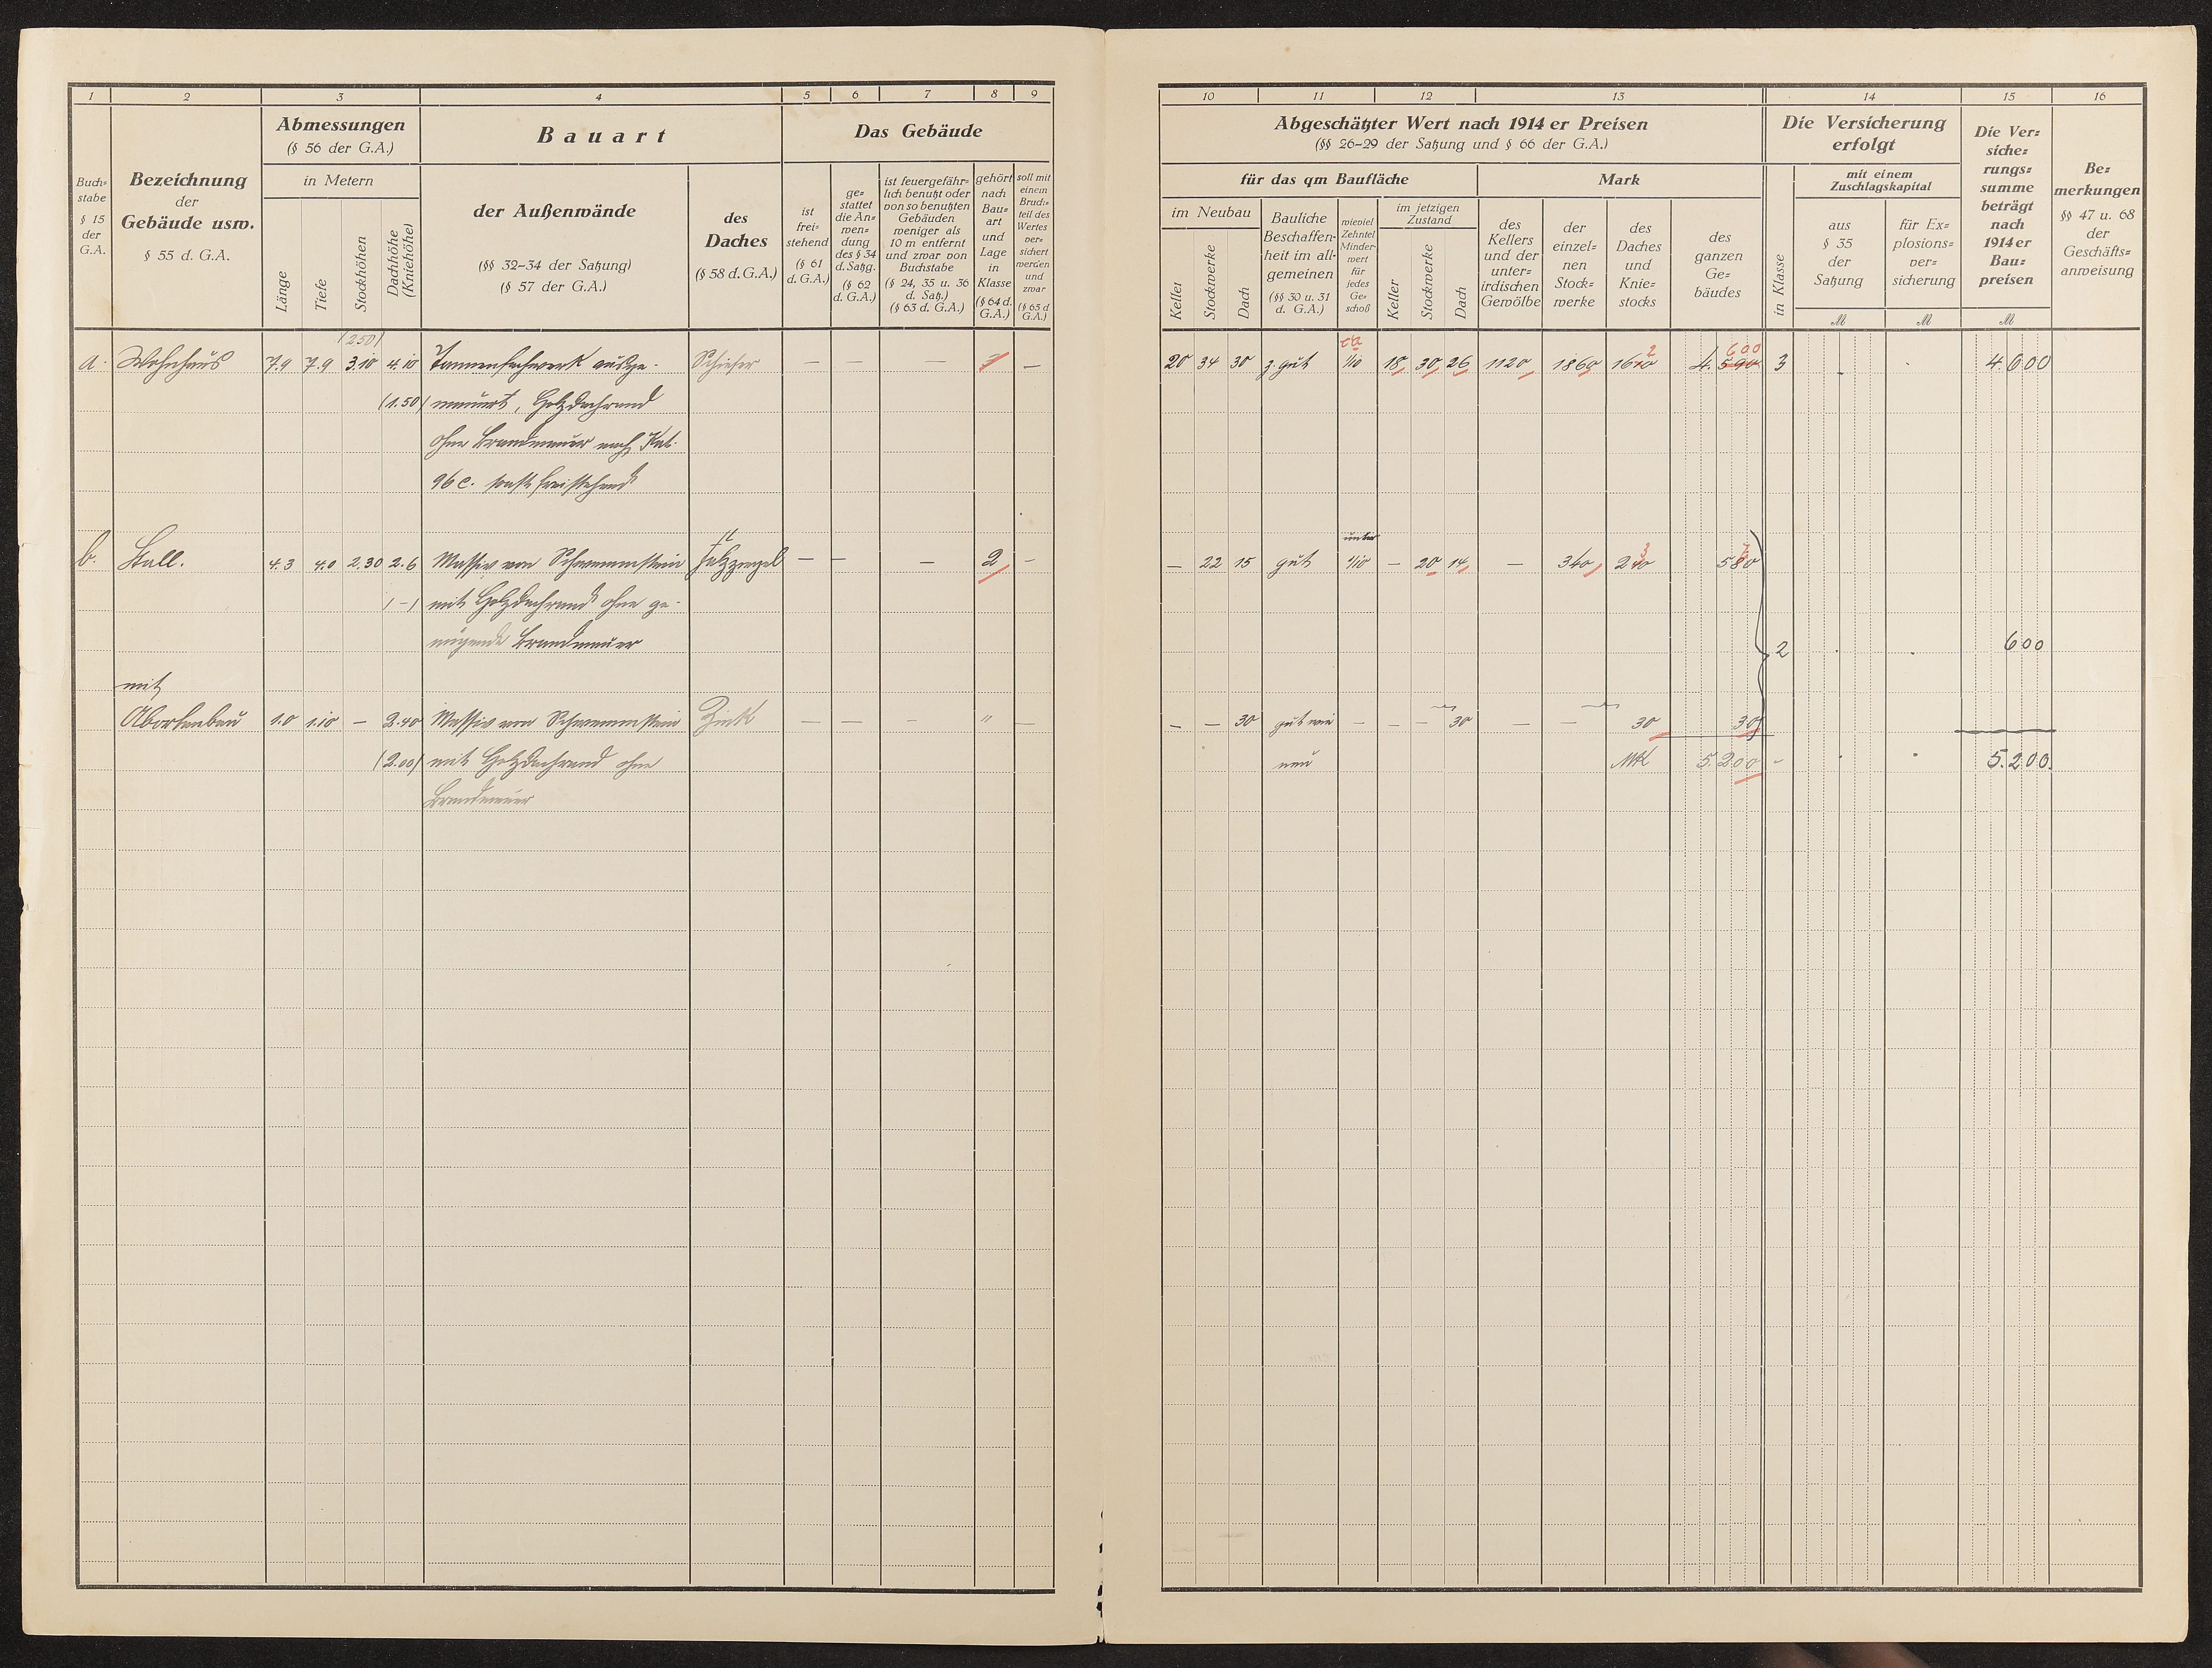 1 2 3 4 5 6 7 8 9
Buch=
stabe
§ 15
der
G.A.
Bezeichnung
der
Gebäude usw.
§ 55 d. G.A.
Abmessungen
(§ 56 der G.A.)
in Metern
Länge
Tiefe
Stockhöhen
Dachhöhe
(Kniehöhe)
Bauart
der Außenwände
(§§ 32-34 der Satzung)
(§ 57 der G.A.)
des
Daches
(§ 58 d. G.A.)
Das Gebäude
ist
frei=
stehend
(§ 61
d. G.A.)
ge=
stattet
die An=
wen=
dung
des § 34
d. Satzg.
(§ 62
d. G.A.)
ist feuergefähr=
lich benutzt oder
von so benutzten
Gebäuden
weniger als
10 m entfernt
und zwar von
Buchstabe
(§ 24, 35 u. 36
d. Satz.)
(§ 63 d. G.A.)
gehört
nach
Bau=
art
und
Lage
in
Klasse
(§ 64 d.
G.A.)
soll mit
einem
Bruch=
teil des
Wertes
ver=
sichert
werden
und
zwar
(§ 65 d
G.A.)
(2.50)
a. Wohnhaus 7.9 7.9 3.10 4.10 Tannenfachwerk ausge- Schiefer — — — —
(1.50) mauert, Holzdachrand
ohne Brandmauer nach Kat.
96 c. sonst freistehend
b. Stall. 4.3 4.0 2.30 2.6 Massiv von Schwemmstein Falzziegel — — — 2 —
(-) mit Holzdachrand ohne ge-
nügende Brandmauer
mit
Abortanbau 1.0 1.10 — 2.40 Massiv von Schwemmstein Zink — — — " —
(2.00) mit Holzdachrand ohne
Brandmauer
10 11 12 13 14 15 16
Abgeschätzter Wert nach 1914 er Preisen
(§§ 26-29 der Satzung und § 66 der G.A.)
für das qm Baufläche
Mark
im Neubau
Keller
Stockwerke
Dach
Bauliche
Beschaffen=
heit im all=
gemeinen
(§§ 30 u. 31
d. G.A.)
wieviel
Zehntel
Minder=
wert
für
jedes
Ge=
schoß
im jetzigen
Zustand
Keller
Stockwerke
Dach
des
Kellers
und der
unter=
irdischen
Gewölbe
der
einzel=
nen
Stock=
werke
des
Daches
und
Knie=
stocks
des
ganzen
Ge=
bäudes
Die Versicherung
erfolgt
in Klasse
mit einem
Zuschlagskapital
aus
§ 35
der
Satzung
M
für Ex=
plosions=
ver=
sicherung
M
Die Ver=
siche=
rungs=
summe
beträgt
nach
1914 er
Bau=
preisen
M
Be=
merkungen
§§ 47 u. 68
der
Geschäfts=
anweisung
ca 2 600
20 34 30 z. gut 1/10 18 30 26 1120 1860 1610 4.590 3 - . 4.600
unter 3
— 22 15 gut 1/10 — 20 14 — 340 240 580
2 . . 600
— — 30 gut wie — — — 30 — — 30 30
neu Mk 5.200 - . . 5.200.